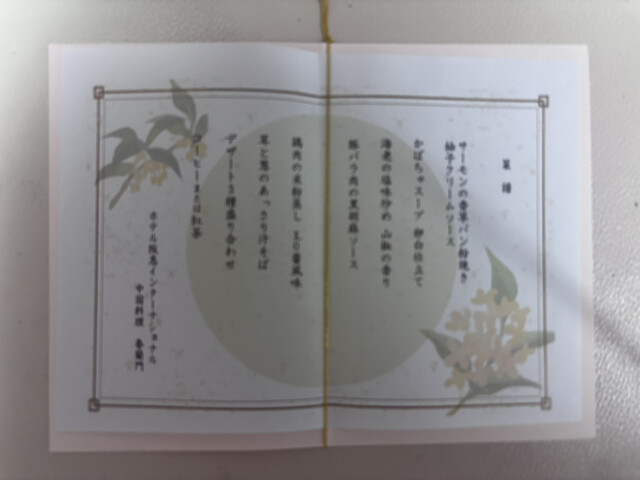 菜譜
サーモンの香草パン粉焼き
柚子クリームソース
かぼちゃスープ 卵白仕立て
海老の塩味炒め 山椒の香り
豚バラ肉の黒胡麻ソース
鶏肉の米粉蒸し 風味
葱のあっさり汁そば
デザート3種盛り合わせ
コーヒーまたは紅茶
ホテル阪急インターナショナル
中国料理 春蘭門